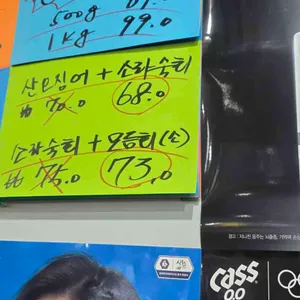 500g
1kg 99.0
산오징어 + 소라숙회
70.0 68.0
소라숙회 + 모듬회(소)
75.0 73.0
Cass
0.0